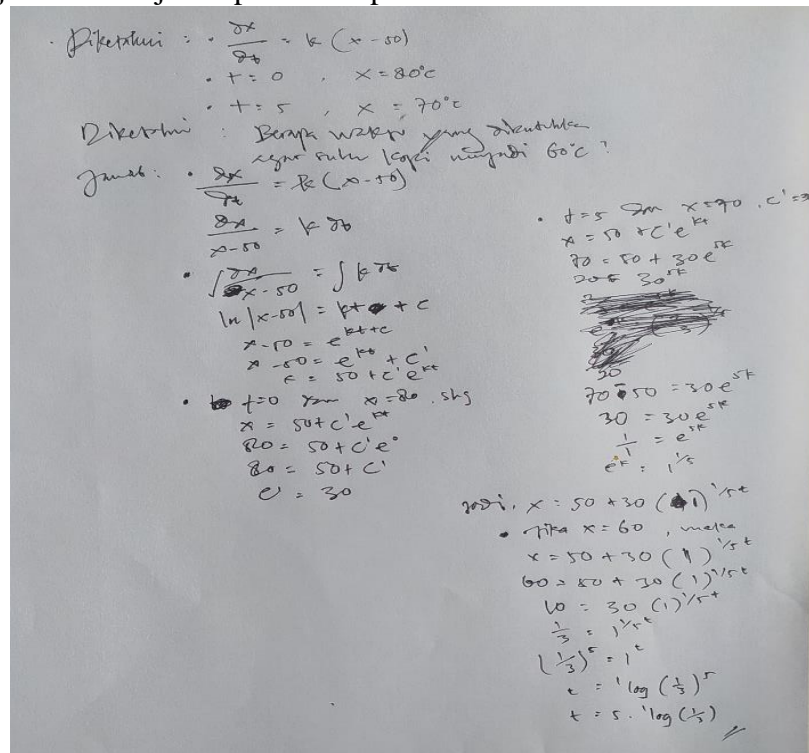 Diketahui : • ∂x/∂t = k (x - 50)
• t = 0 , x = 80°c
• t = 5 , x = 70°c
Diketahui : Berapa waktu yang dibutuhkan
agar suhu kopi menjadi 60°c ?
Jawab : • ∂x/∂t = k (x - 50)
∂x/x-50 = k ∂t
• ∫ ∂x/x-50 = ∫ k ∂t
ln |x-50| = kt + c
x - 50 = e^kt+c
x - 50 = e^kt + c'
= 50 + c' e^kt
• t=0 x=80 . shg
x = 50 + c' e^kt
80 = 50 + c' e°
80 = 50 + c'
c' = 30
• t=5 x=70 . c' =
x = 50 + c' e^kt
70 = 50 + 30 e^5k
20 = 30^5k
20
70 - 50 = 30 e^5k
30 = 30 e^5k
1/1 = e^5k
e^k = 1^1/5
jadi, x = 50 + 30 (1)^1/5t
• Jika x = 60 , maka
x = 50 + 30 (1)^1/5t
60 = 50 + 30 (1)^1/5t
10 = 30 (1)^1/5t
1/3 = 1^1/5t
(1/3)^5 = 1^t
t = ¹log (1/3)^5
t = 5 . ¹log (1/3)